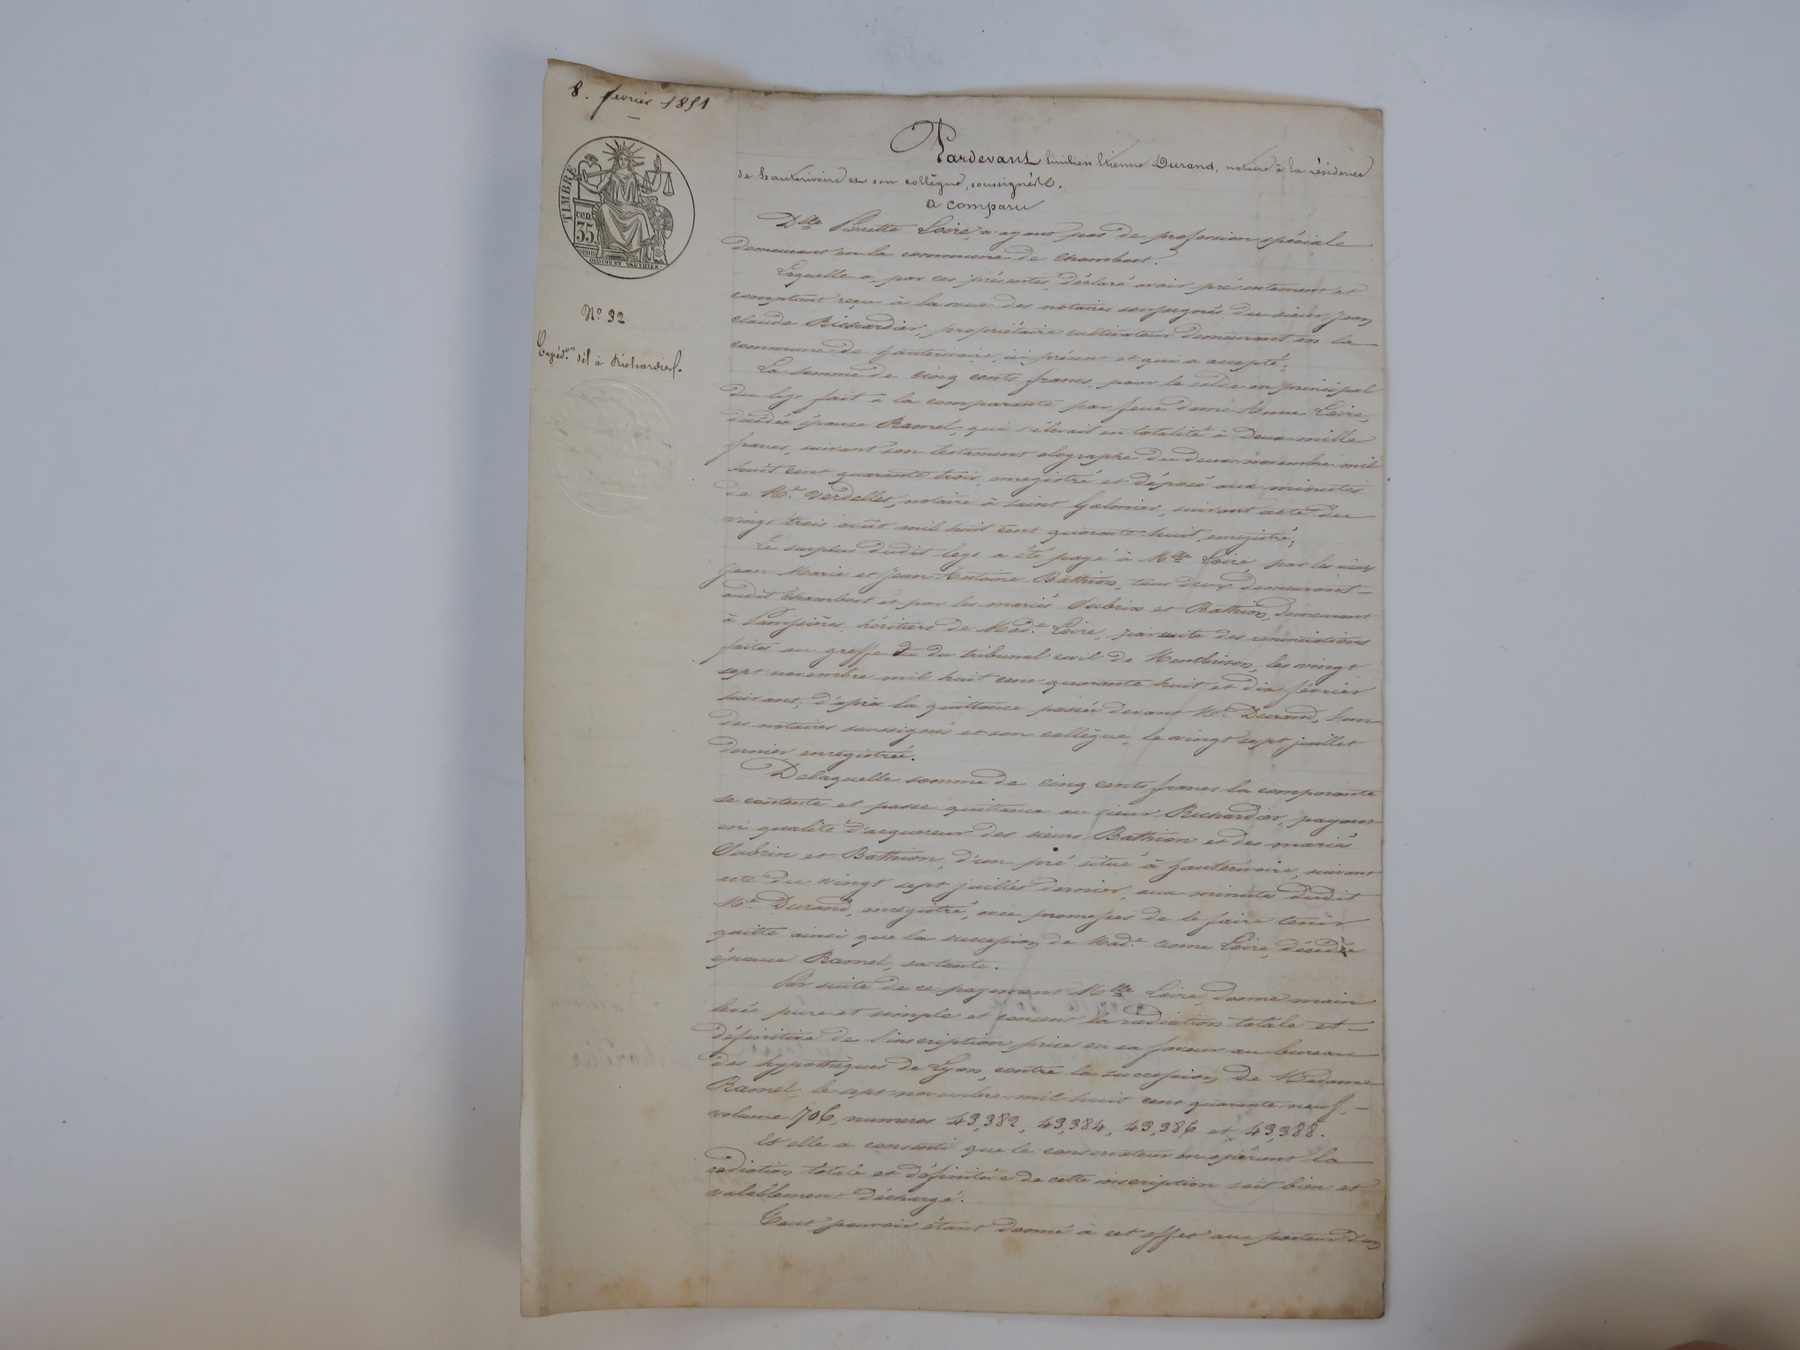 8. février 1851
TIMBRE
cen
35
OUDINE ET VAUTHIER
N.º 32
Expéd.on dél à Richardier.
Pardevant Emilien Etienne Durand, notaire à la résidence
de hauterivoire et son collègue, soussignés.
a comparu
Dlle Pierrette Loire, n'ayant pas de profession spéciale
demeurant en la commune de Chambost.
Laquelle a, par ces présentes, déclaré avoir présentement et
comptant reçu à la vue des notaires soussignés, du sieur Jean
claude Richardier, propriétaire cultivateur demeurant en la
commune de hauterivoire, ici présent et qui a accepté;
La somme de cinq cents francs, pour le solde en principal
du legs fait à la comparante par feue dame Anne Loire,
décédée épouse Ramel, qui s'élevait en totalité à Deux mille
francs, suivant son testament olographe du deux novembre mil
huit cent quarante trois, enregistré et déposé aux minutes
de Me. Verdellet, notaire à saint Galmier, suivant acte du
vingt trois août mil huit cent quarante huit, enregistré;
Le surplus dudit legs a été payé à Mlle Loire, par les sieurs
Jean Marie et Jean Antoine Bathion, tous deux demeurant
audit Chambost et par les mariés Subrin et Bathion, demeurant
à héritiers de Made. Loire, par suite des renonciations
faites au greffe du tribunal civil de Montbrison, les vingt
sept novembre mil huit cent quarante huit et dix février
suivant, d'après la quittance passée devant Me. Durand, l'un
des notaires soussignés et son collègue, le vingt sept juillet
dernier enregistrée.
Delaquelle somme de cinq cents francs la comparante
se contente et passe quittance au sieur Richardier, payant
en qualité d'acquereur des sieurs Bathion et des mariés
Subrin et Bathion, d'un pré situé à hauterivoire, suivant
acte du vingt sept juillet dernier, aux minutes dudit
Me. Durand, enregistré, avec promesses de le faire tenir
quitte ainsi que la succession de Made. Anne Loire, décédée
épouse Ramel, sa tante.
Par suite de ce payement Mlle Loire, donne main
levée pure et simple et consent la radiation totale et
définitive de l'inscription prise en sa faveur au bureau
des hypothèques de Lyon, contre la succession de Madame
Ramel, le sept novembre mil huit cent quarante neuf,
volume 706, numeros 43,382, 43,384, 43,386 et 43,388.
Et elle a consenti que le conservateur en opérant la
radiation totale et définitive de cette inscription soit bien et
valablement déchargé.
Tout pouvoir étant donné à cet effet au porteur d'un